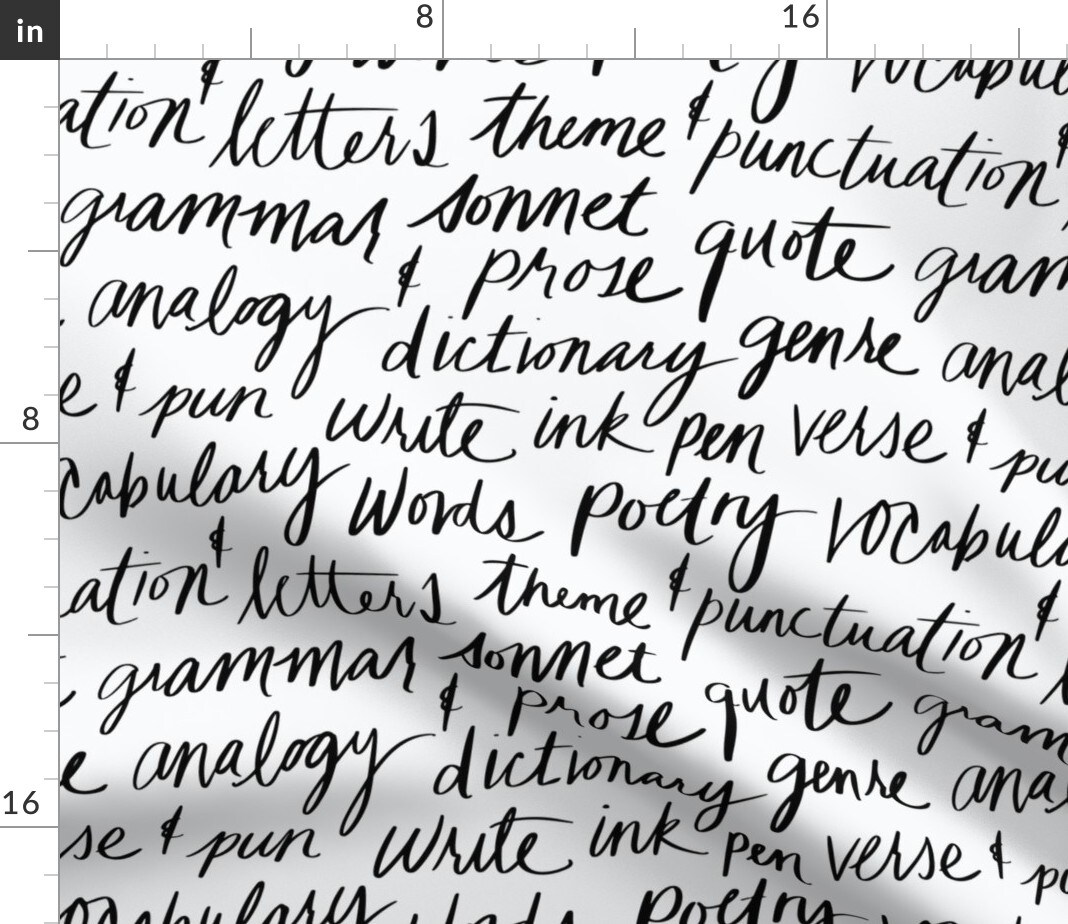 in 8 16
vocabul
ation & letters theme & punctuation &
grammar sonnet quote gram
analogy & prose
dictionary genre anal
e & pun write ink pen verse & pu
8
cabulary words poetry vocabula
ation & letters theme & punctuation &
grammar sonnet quote gram
& prose
e analogy dictionary genre ana
16
se & pun write ink pen verse & pu
vocabulary words poetry